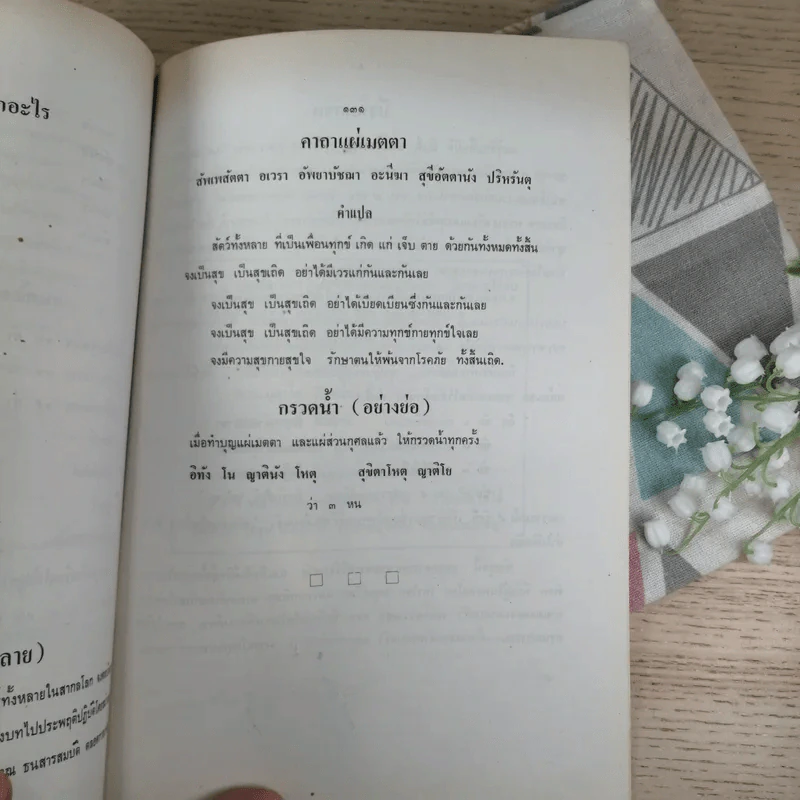 กอะไร
ลาย)
ทั้งหลายในสากลโลก
งบทไปประพฤติปฏิบัติ
ธนสารสมบัติ
๑๓๑
คาถาแผ่เมตตา
สัพเพสัตตา อเวรา อัพยาบัชฌา อะนีฆา สุขีอัตตานัง ปริหรันตุ
คำแปล
สัตว์ทั้งหลาย ที่เป็นเพื่อนทุกข์ เกิด แก่ เจ็บ ตาย ด้วยกันทั้งหมดทั้งสิ้น
จงเป็นสุข เป็นสุขเถิด อย่าได้มีเวรแก่กันและกันเลย
จงเป็นสุข เป็นสุขเถิด อย่าได้เบียดเบียนซึ่งกันและกันเลย
จงเป็นสุข เป็นสุขเถิด อย่าได้มีความทุกข์กายทุกข์ใจเลย
จงมีความสุขกายสุขใจ รักษาตนให้พ้นจากโรคภัย ทั้งสิ้นเถิด.
กรวดน้ำ (อย่างย่อ)
เมื่อทำบุญแผ่เมตตา และแผ่ส่วนกุศลแล้ว ให้กรวดน้ำทุกครั้ง
อิทัง โน ญาตินัง โหตุ สุขิตาโหตุ ญาติโย
ว่า ๓ หน